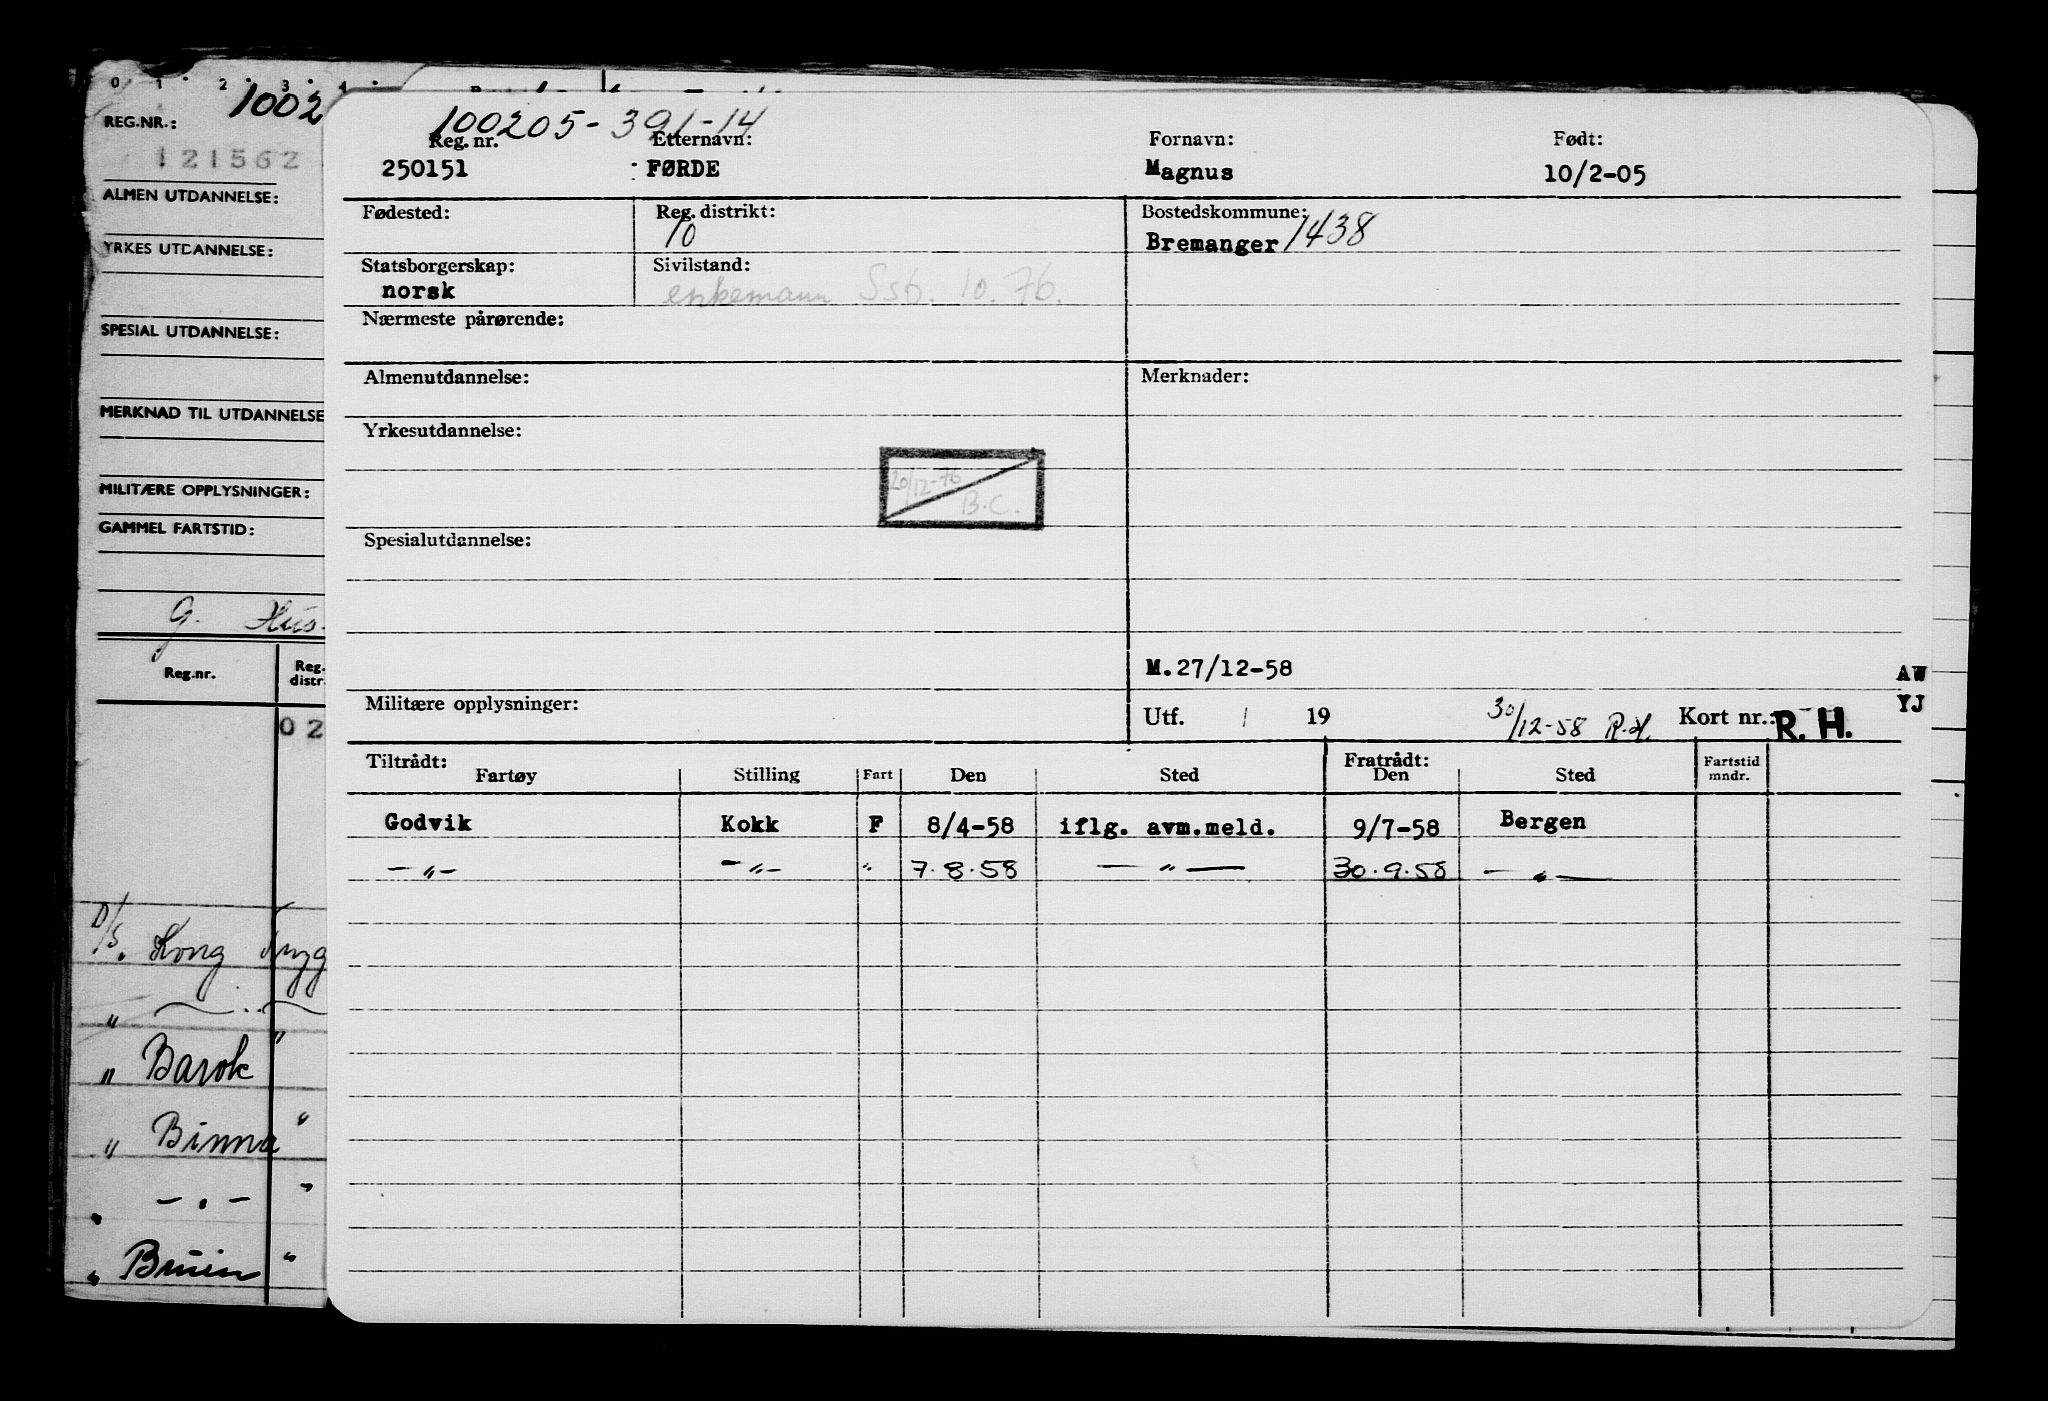 0 1 2 3 4
1002
REG.NR.:
121562
ALMEN UTDANNELSE:
YRKES UTDANNELSE:
SPESIAL UTDANNELSE:
MERKNAD TIL UTDANNELSE
MILITÆRE OPPLYSNINGER:
GAMMEL FARTSTID:
G. Hus-
Reg.nr. Reg. distr.
02
D/S. Kong
" — " —
" Barok "
" Binna "
" — " — "
" Bruin "
100205-391-14
Reg. nr. Etternavn: Fornavn: Født:
250151 FØRDE Magnus 10/2-05
Fødested: Reg. distrikt: Bostedskommune:
10 Bremanger 1438
Statsborgerskap: Sivilstand:
norsk enkemann Ssb. 10.76.
Nærmeste pårørende:
Almenutdannelse: Merknader:
Yrkesutdannelse:
20/12-76
B.C.
Spesialutdannelse:
M.27/12-58 AW
Militære opplysninger: Utf. / 19 30/12-58 R.H. Kort nr.: R. H. YJ
Tiltrådt: Fratrådt: Fartstid mndr.
Fartøy Stilling Fart Den Sted Den Sted
Godvik Kokk F 8/4-58 iflg. avm.meld. 9/7-58 Bergen
—"— —"— " 7.8.58 —"— 30.9.58 —"—